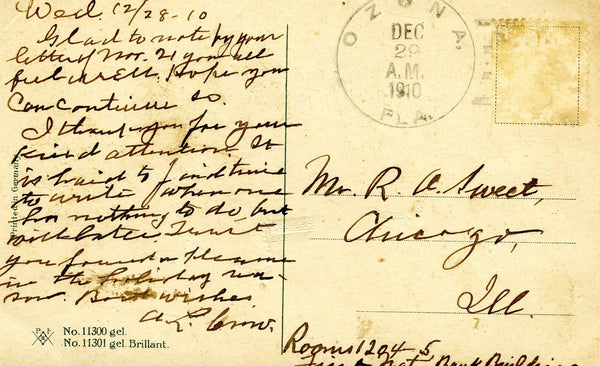 Wed. 12/28-10
Glad to note by your
letter of Nov. 21 you all
feel well. Hope you
can continue so.
I thank you for your
kind attention. It
is hard to find time
to write when one
has nothing to do, but
will later. Trust
you found pleasure
in the holiday sea-
son. Best wishes
A. L. Crow.
Printed in Germany
P F
No. 11300 gel.
No. 11301 gel. Brillant.
OZONA.
DEC
29
A.M.
1910
FLA.
Mr. R. A. Sweet,
Chicago,
Ill.
Rooms 1204-5
First Nat. Bank Building